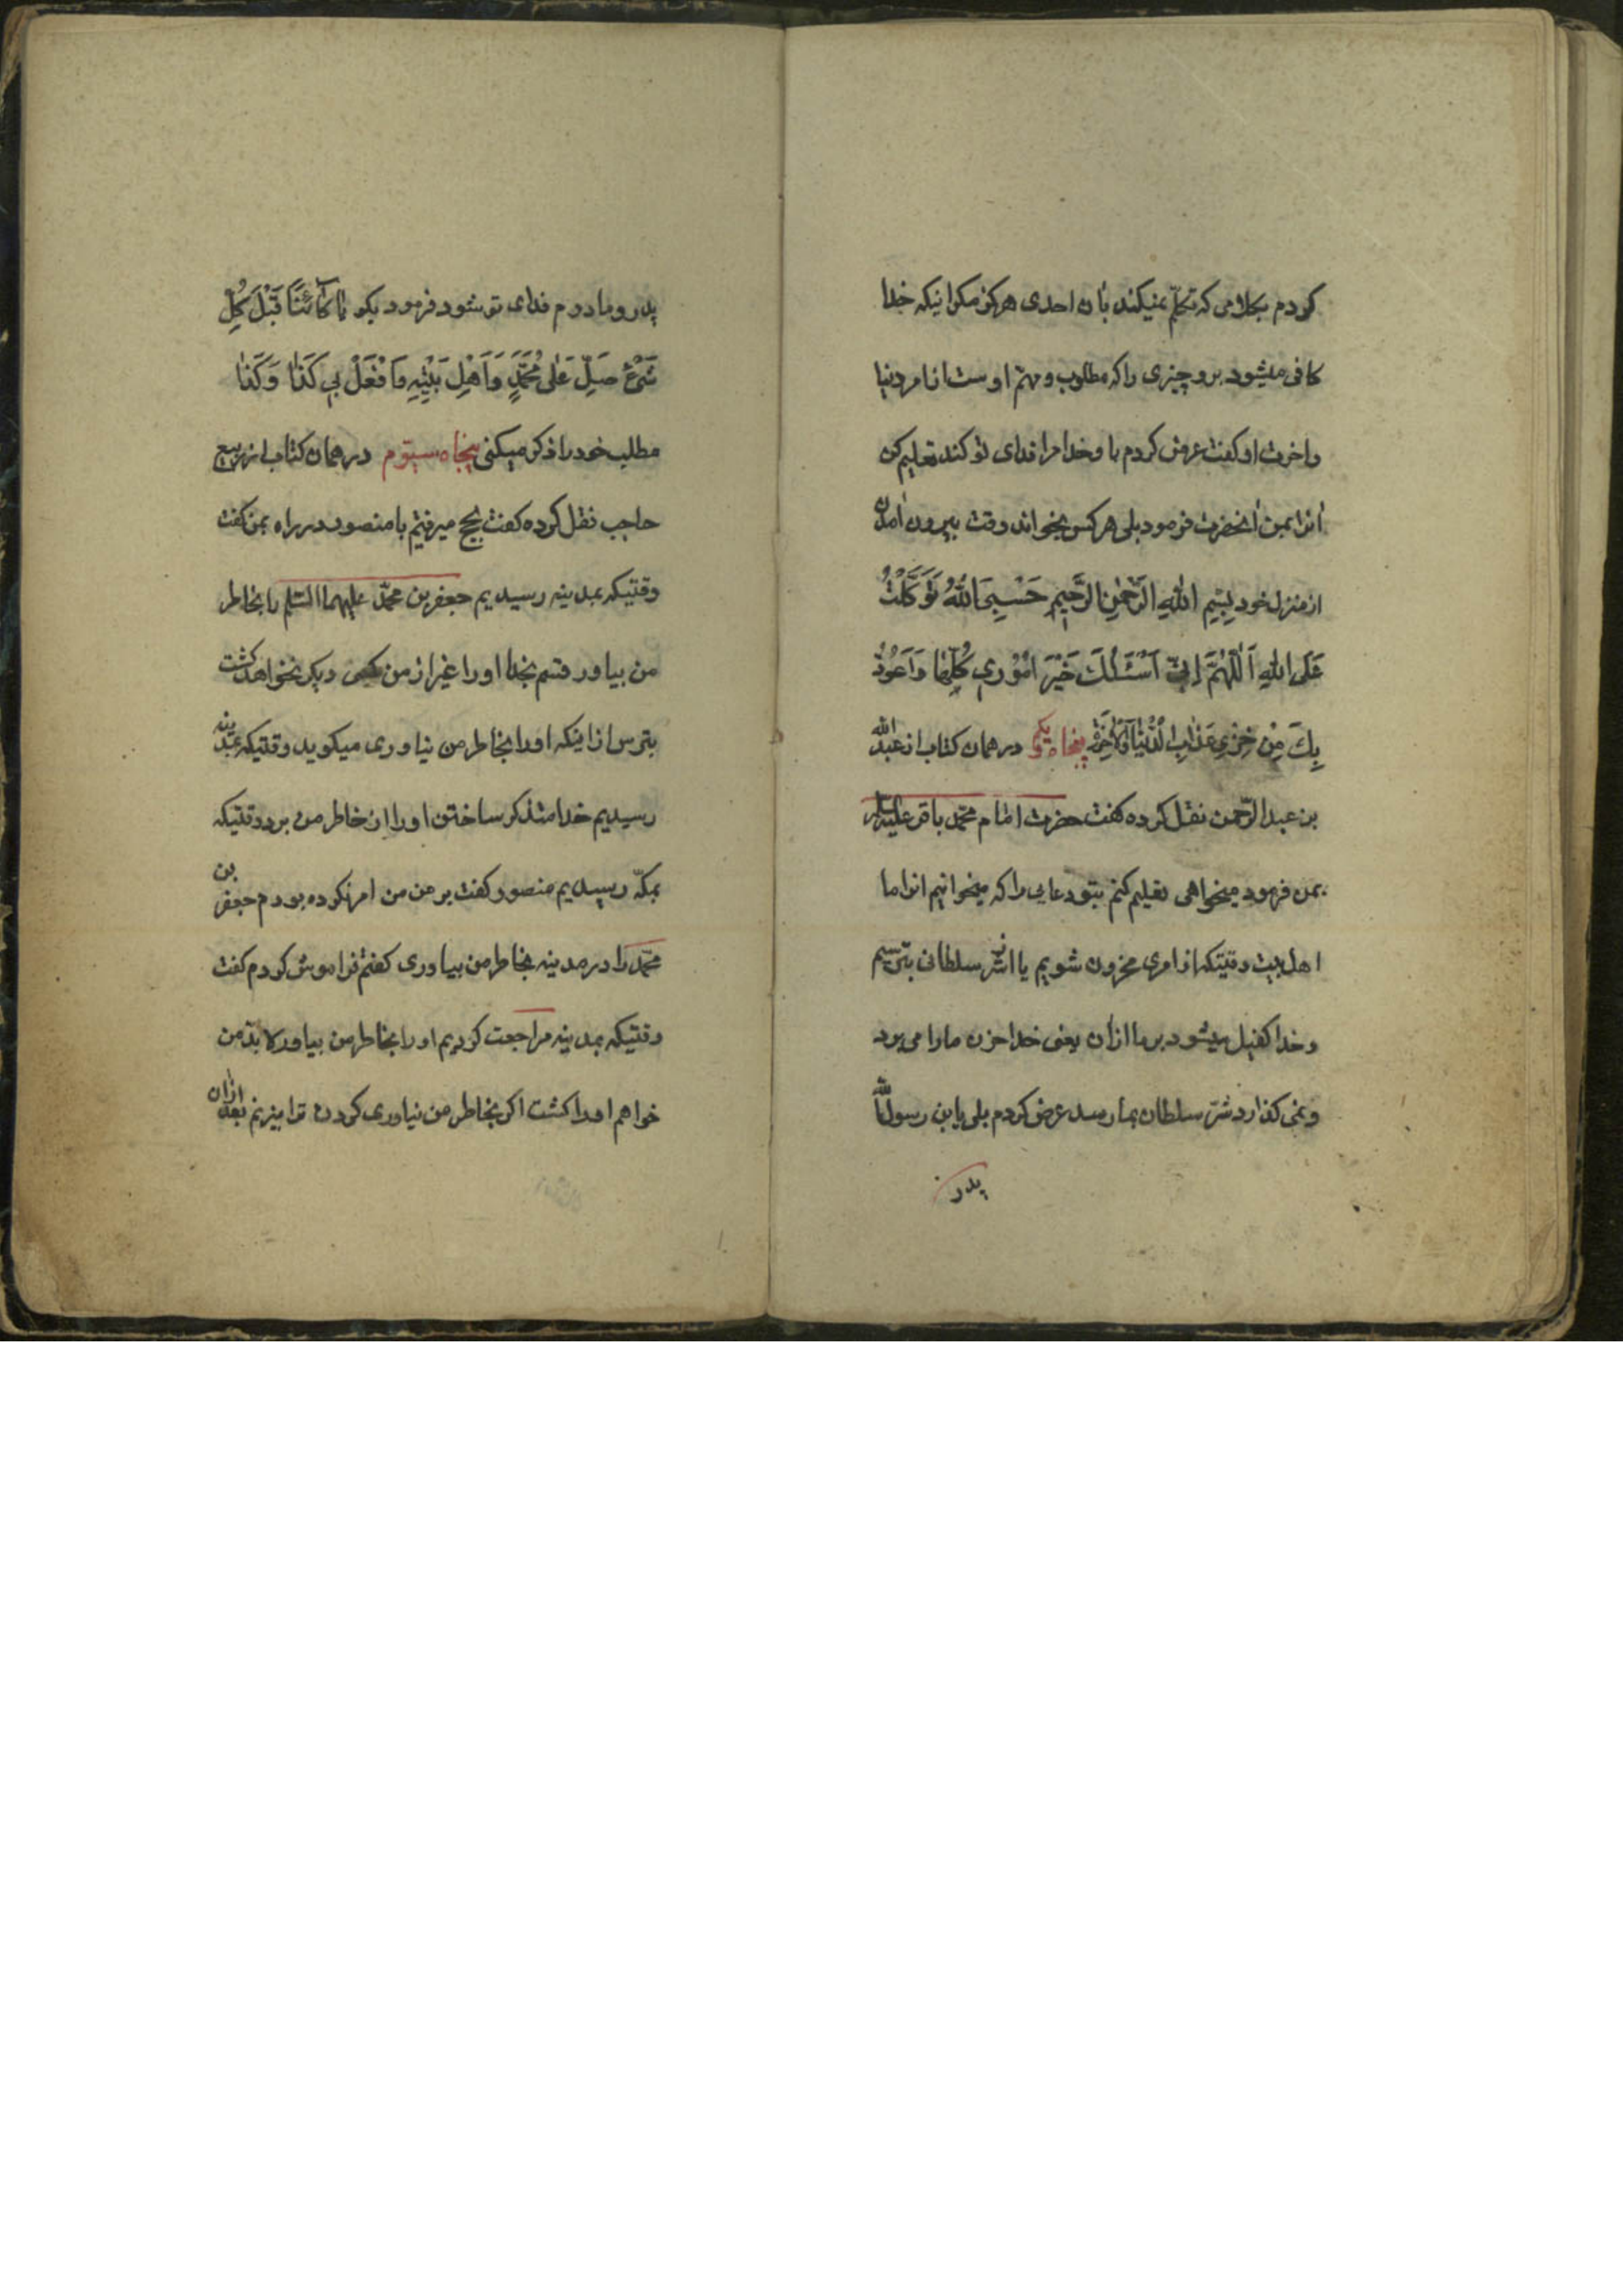 کردم بکلامی که تکلّم نمیکند بان احدی هرکز مکر اینکه خدا
کافی میشود بر و چیزی را که مطلوب و مهتم اوست از امر دنیا
و اخرت او کفت عرض کردم با و خدا مرا فدای تو کند تعلیم کن
انرا بمن انحضرت فرمود بلی هر کس بخواند وقت بیرون امدن
از منزل خود بِسْمِ اللّٰهِ الرَّحْمٰنِ الرَّحِیمِ حَسْبِیَ اللّٰهُ تَوَکَّلْتُ
عَلَی اللّٰهِ اَللّٰهُمَّ اِنّی اَسْئَلُكَ خَیْرَ اُمُوُرِی کُلِّهٰا وَ اَعُوُذُ
بِكَ مِنْ خِزْیِ عَذٰابِ الدُّنْیٰا وَالْاٰخِرَةِ پنجاه و یکم در همان کتاب از عبد اللّه
بن عبد الرّحمن نقل کرده کفت حضرت امام محمّد باقر علیه السلام
بمن فرمود میخواهی تعلیم کنم بتو دعایی را که میخوانیم انرا ما
اهل بیت وقتیکه از امری محزون شویم یا از شر سلطانی بترسیم
و خدا کفیل میشود بر ما ازان یعنی خدا حزن ما را می برد
و نمی کذارد شرّ سلطان بما رسد عرض کردم بلی یابن رسول اللّه
پدر
پدر و مادرم فدای تو شود فرمود بکو یٰا کٰائِنًا قَبْلَ کُلِّ
شَیْءٍ صَلِّ عَلٰی مُحَمَّدٍ وَ اَهْلِ بَیْتِهِ وَ افْعَلْ بِی کَذٰا وَ کَذٰا
مطلب خود را ذکر میکنی پنجاه سیّوم در همان کتاب از ربیع
حاجب نقل کرده کفت بحج میرفتیم با منصور در راه بمن کفت
وقتیکه بمدینه رسیدیم جعفر بن محمّد علیهما السّلم را بخاطر
من بیاور قسم بخدا او را غیر از من کسی دیکر نخواهد کشت
بترس از اینکه او را بخاطر من نیاوری میکوید وقتیکه بمدینه
رسیدیم خدا متذکر ساختن او را از خاطر من برد وقتیکه
بمکّه رسیدیم منصور کفت بر من من امر نکرده بودم جعفر بن
محمّد را در مدینه بخاطر من بیاوری کفتم فراموش کردم کفت
وقتیکه بمدینه مراجعت کردیم او را بخاطر من بیاور لابدّ من
خواهم او را کشت اکر بخاطر من نیاوری کردن ترا میزنم بعد ازان